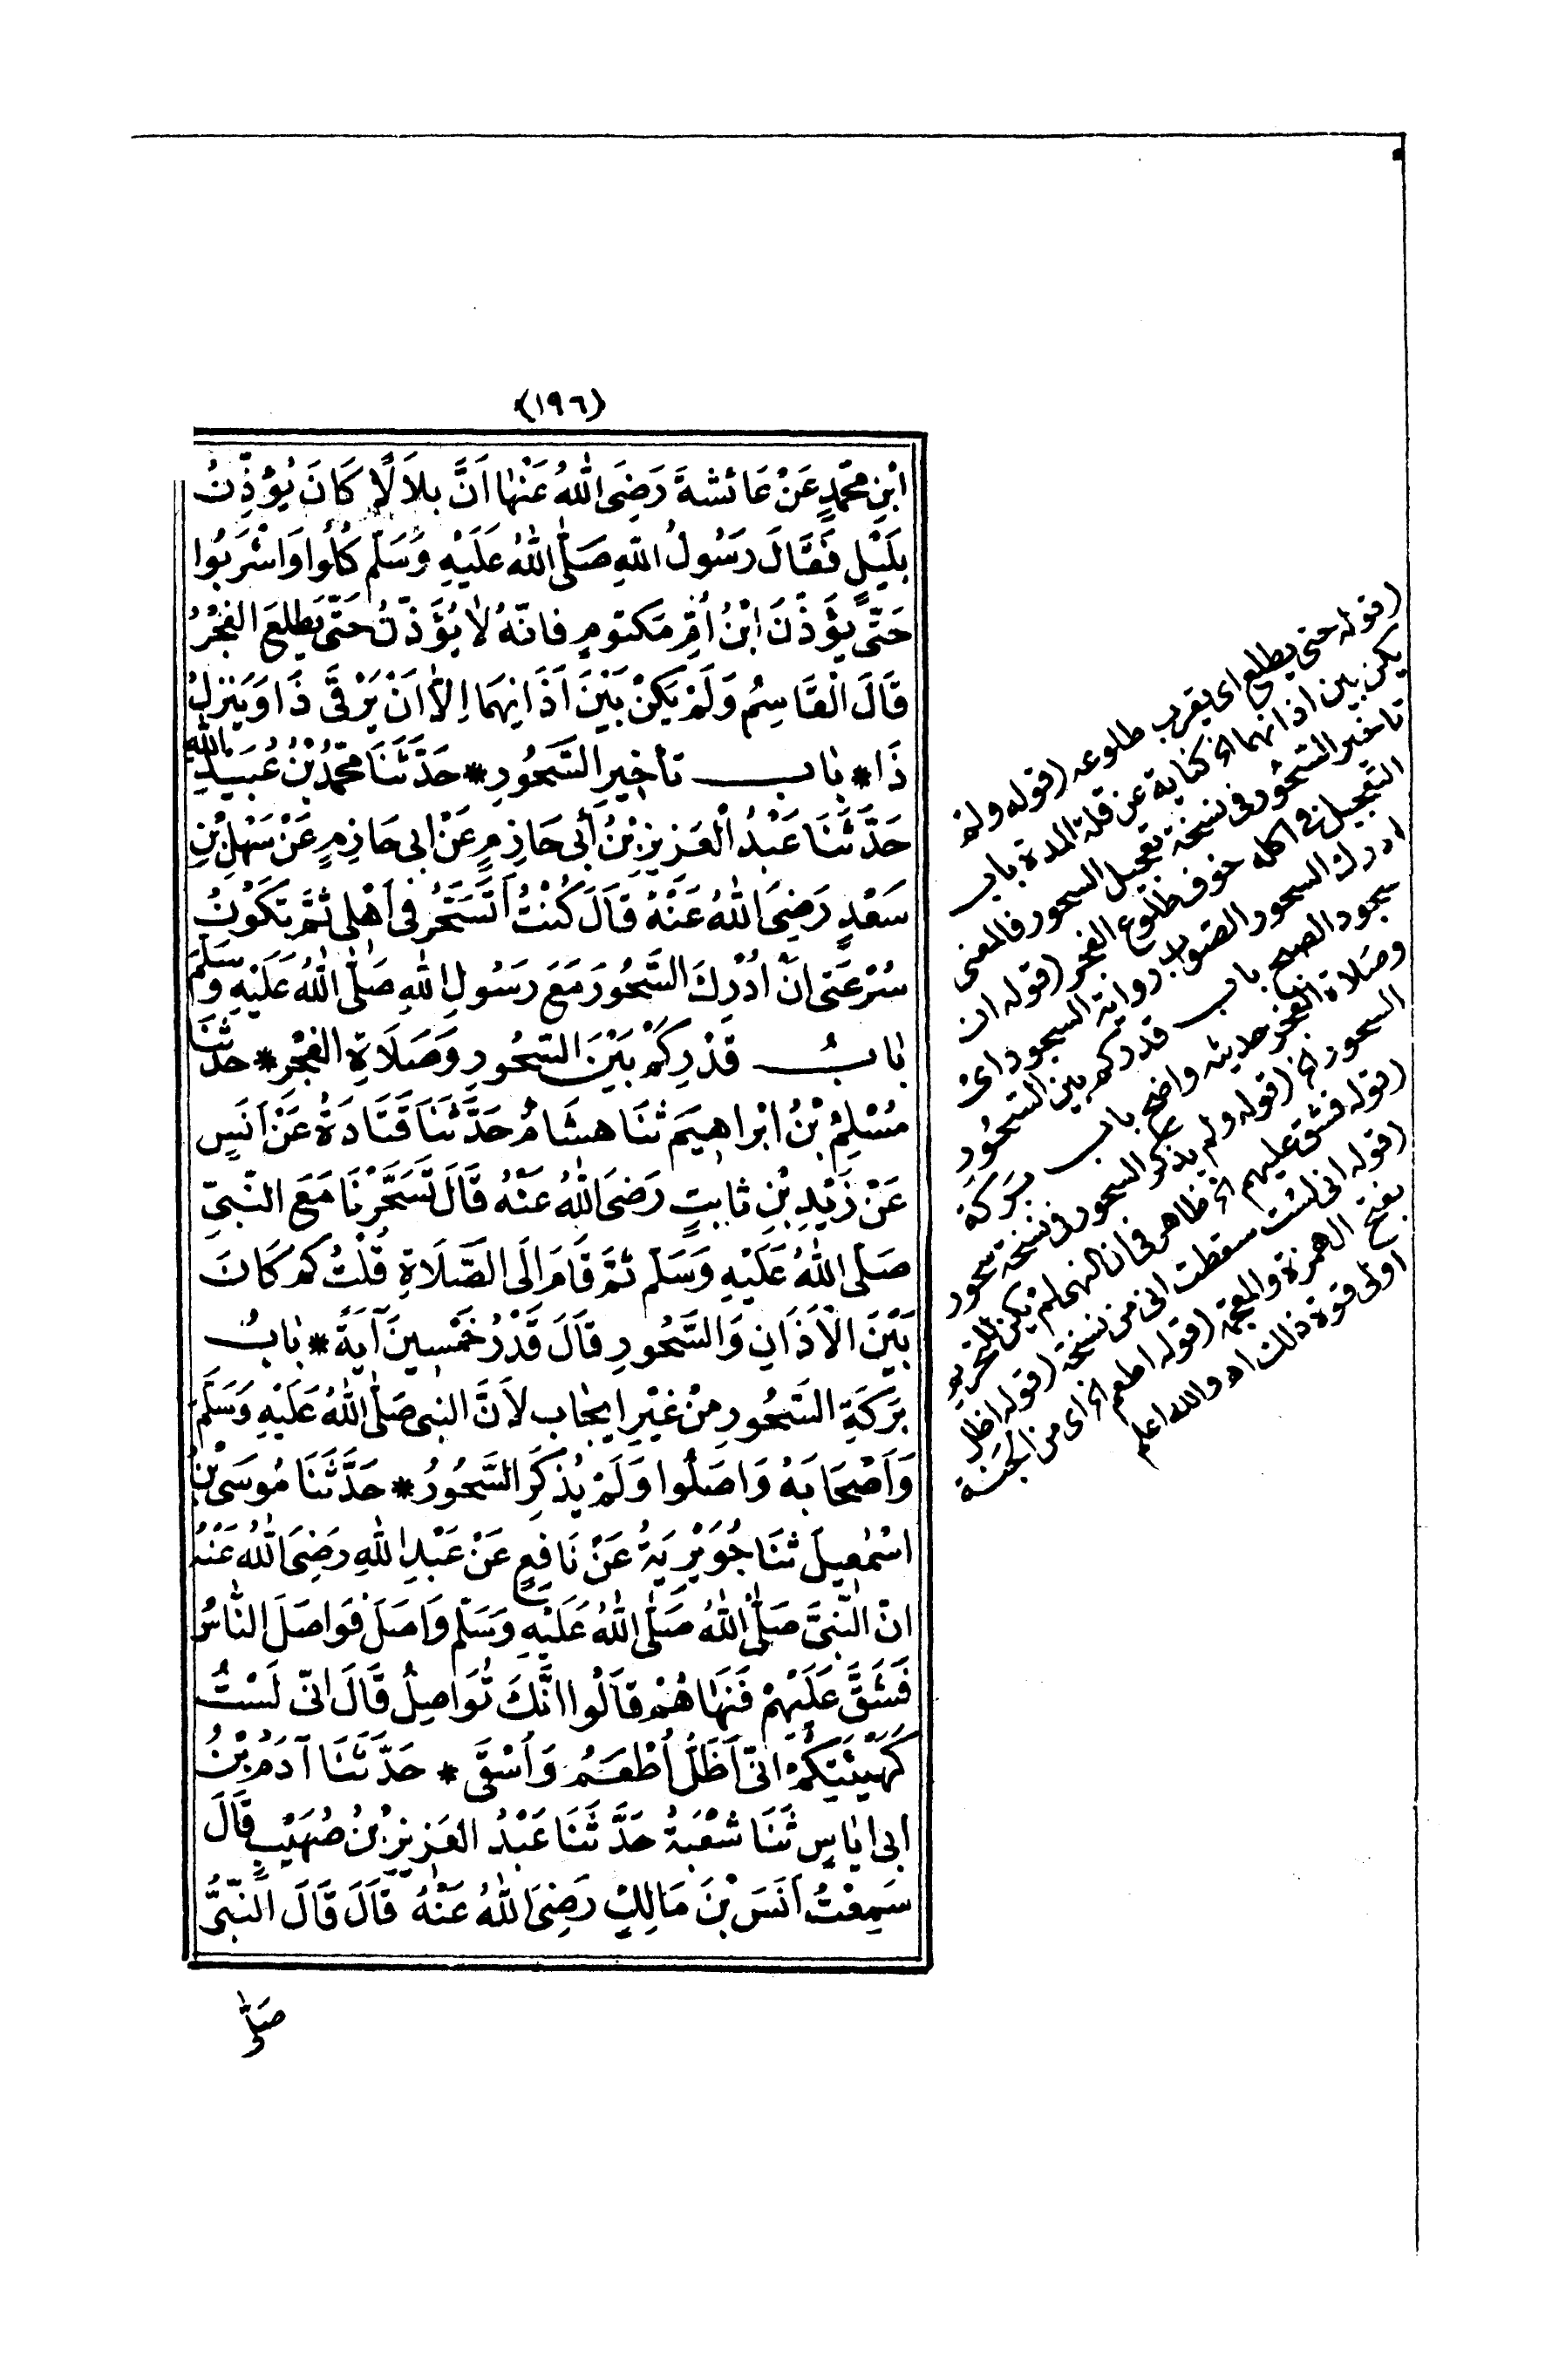 (١٩٦)
ابْنِ مُحَمَّدٍ عَنْ عَائشةَ رَضِىَ اللهُ عَنْهَا اَنَّ بِلاَلًا كَانَ يُؤَذِّنُ
بِلَيْلٍ فَقَالَ رَسُولُ اللهِ صَلَّى اللهُ عَلَيْهِ وَسَلَّم كُلُوا وَاشْرَبُوا
حَتَّى يؤَذِّنَ ابْنُ اُمِّ مَكتومٍ فانّهُ لاَ يُؤَذِّنُ حَتَّى يَطلعَ الفَجْرُ
قَالَ الْقَاسِمُ وَلَمْ يَكنْ بَيْنَ اَذَانِهِمَا اِلاَّ اَنْ يَرْقَى ذَا وَيَنْزِلَ
ذَا * بَاب تأخيرِ السَّحُورِ * حَدَّثَنَا مُحَمَّدُ بْنُ عُبَيْدِ اللهِ
حَدَّثَنَا عَبْدُ الْعَزيزِ بْنُ اَبى حَازِمٍ عَنْ ابى حَازِمٍ عَنْ سَهْلِ بْنِ
سَعْدٍ رَضِىَ اللهُ عَنْهُ قَالَ كُنْتُ اَتَسَحَّرُ فى اَهْلى ثمَّ تَكُونُ
سُرْعَتى انْ اُدْرِكَ السَّحُورَ مَعَ رَسُولِ اللهِ صَلَّى اللهُ عَلَيْهِ وَسَلَّمَ
بَابُ قَدْرِكَمْ بَيْنَ السَّحُورِ وَصَلَاةِ الفَجْرِ * حَدثنَا
مُسْلِمُ بْنُ ابْراهِيمَ ثنَا هشَامٌ حَدَّثنَا قَتَادَةُ عَنْ اَنَسٍ
عَنْ زَيْدِ بْنِ ثابتٍ رَضىَ اللهُ عَنْهُ قَالَ تَسَحَّرْنَا مَعَ النَّبىِّ
صَلَّى اللهُ عَلَيْهِ وَسَلَّم ثمَّ قَامَ الَى الصَّلاَةِ قُلْتُ كم كَانَ
بَيْنَ الْاَذَانِ وَالسَّحُورِ قَالَ قَدْرُ خَمْسِينَ آيَةً * بَابُ
بَرَكَةِ السَّحُورِ مِنْ غيْرِ ايجَاب لاَنَّ النبى صَلَّى اللهُ عَلَيْهِ وَسَلَّمَ
وَاَصْحَابَهُ وَاصَلُوا وَلَمْ يُذْكَرِ السَّحُورُ * حَدَّثَنَا مُوسَى بْنُ
اسْمٰعيلَ ثنَا جُوَيْرِيَةُ عَنْ نَافِعٍ عَنْ عَبْدِ اللهِ رَضِىَ اللهُ عَنْهُ
انّ النَّبِىَّ صَلَّى اللهُ صَلَّى اللهُ عَلَيْهِ وَسَلَّم وَاصَلَ فوَاصَلَ النَّاسُ
فَشَقَّ عَلَيْهِمْ فَنَهَاهُمْ قَالُوا انَّكَ تُوَاصِلُ قَالَ انّى لَسْتُ
كَهَيْئَتِكُمْ انّى اَظَلُّ اُطْعَمُ وَاُسْقَى * حَدَّثَنَا آدَمُ بْنُ
ابى ايَاسٍ ثَنَا شُعْبَةُ حَدَّثَنَا عَبْدُ العَزِيزِ بْنُ صُهَيْبٍ قَالَ
سَمِعْتُ اَنَسَ بْنَ مَالِكٍ رَضِىَ اللهُ عَنْهُ قَالَ قَالَ النَّبِىُّ
صَلَّى
(قوله حتى يطلع اى يقرب طلوعه (قوله ولم
يكن بين اذانهما الخ كناية عن قلة المدة باب
تاخير السحور فى نسخة تعجيل السحور فالمعنى
التعجيل فى اكله خوف طلوع الفجر (قوله ان
ادرك السحور الصواب رواية السجود اى
سجود الصبح باب قدركم بين السحور
وصلاة الفجر حديثه واضح باب بركة
السحور الخ (قوله ولم يذكر السحور فى نسخة سحور
(قوله فشق عليهم الخ ظاهر فى ان النهى لم يكن للتحريم
(قوله انى لست سقطت انى من نسخة (قوله اظل
بفتح الهمزة والمعجمة (قوله اطعم الخ اى من الجنة
اوفى قوة ذلك اه والله اعلم